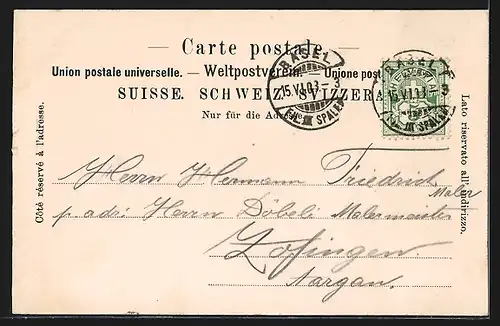 — Carte postale. —
Union postale universelle. — Weltpostverein. — Unione postale
SUISSE. SCHWEIZ. SVIZZERA.
Nur für die Adresse.
Côté réservé à l'adresse.
Lato riservato all'indirizzo.
BASEL
15.VI.03
3
SPALEN
BASEL
15.VI.03
3
SPALEN
Herrn Hermann Friedrich
Maler
p. adr. Herrn Döbeli Malermeister
Zofingen.
Aargau.